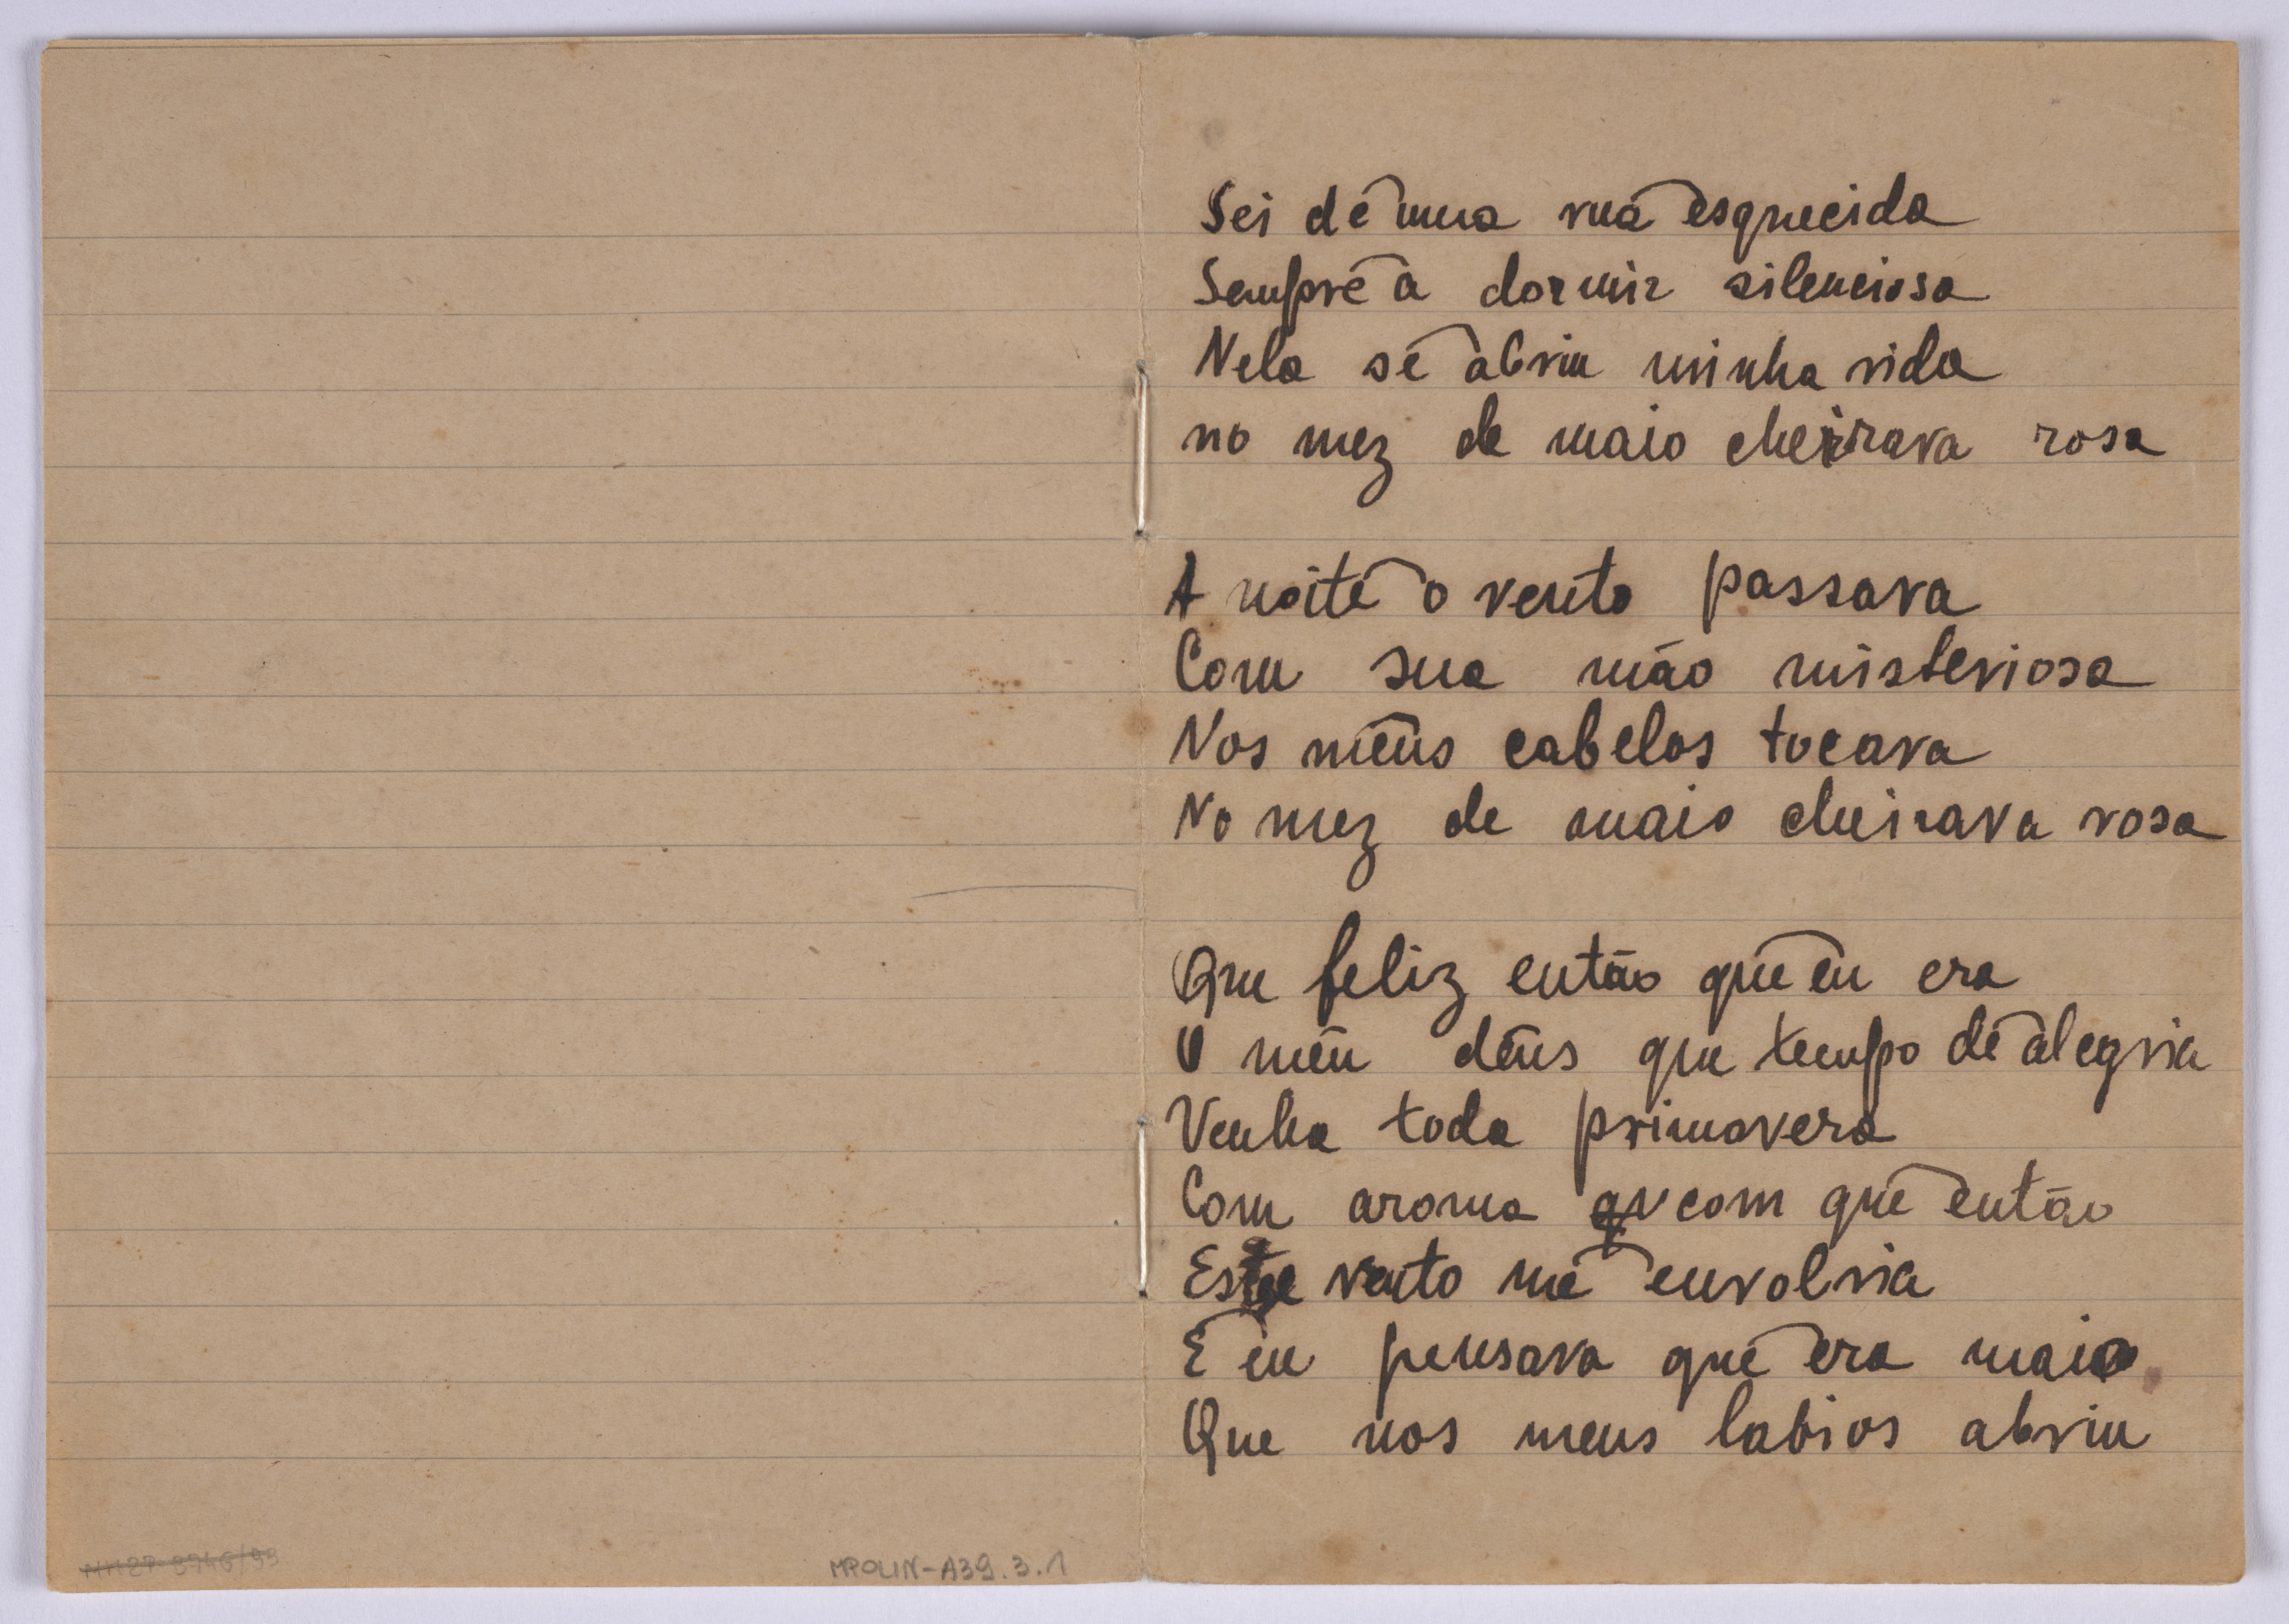 Sei de uma rua esquecida
Sempre a dormir silenciosa
Nela se abriu minha vida
no mez de maio cheirava rosa
A noite o vento passava
Com sua mão misteriosa
Nos meus cabelos tocava
No mez de maio cheirava rosa
Que feliz então que eu era
O meu deus que tempo de alegria
Venha toda primavera
Com aroma com que então
Este vento me envolvia
E eu pensava que era maio
Que nos meus labios abriu
MPOLIN-A39.3.1